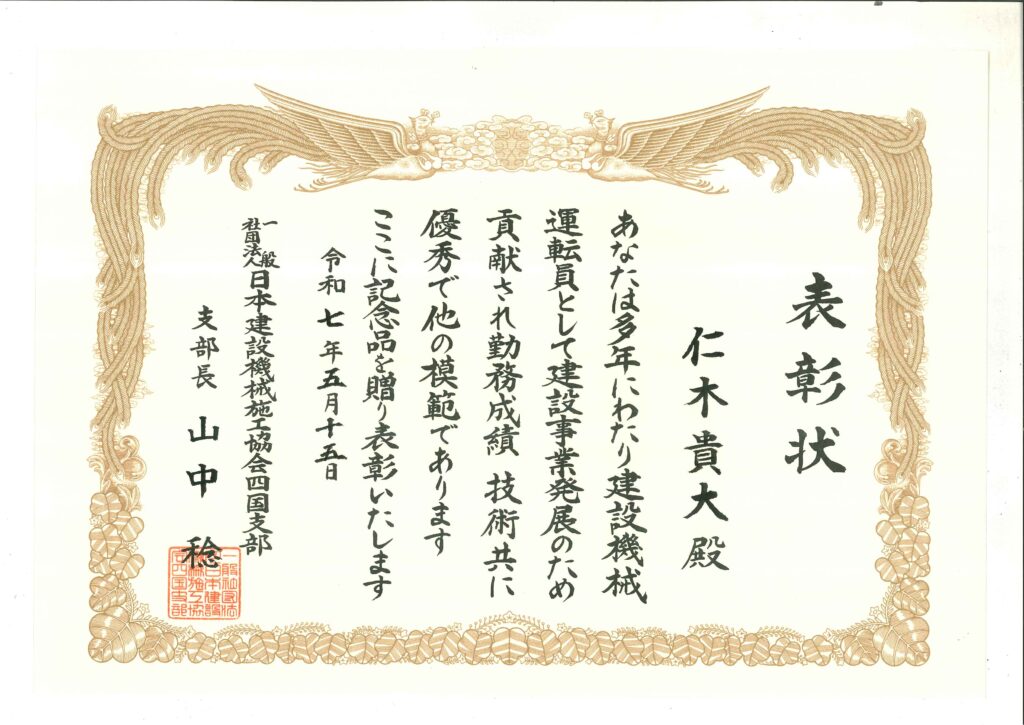 表彰状
仁木貴大殿
あなたは多年にわたり建設機械
運転員として建設事業発展のため
貢献され勤務成績 技術共に
優秀で他の模範であります
ここに記念品を贈り表彰いたします
令和七年五月十五日
一般社団法人日本建設機械施工協会四国支部
支部長 山中 稔
一般社団法
人日本建設
機械施工協
会四国支部